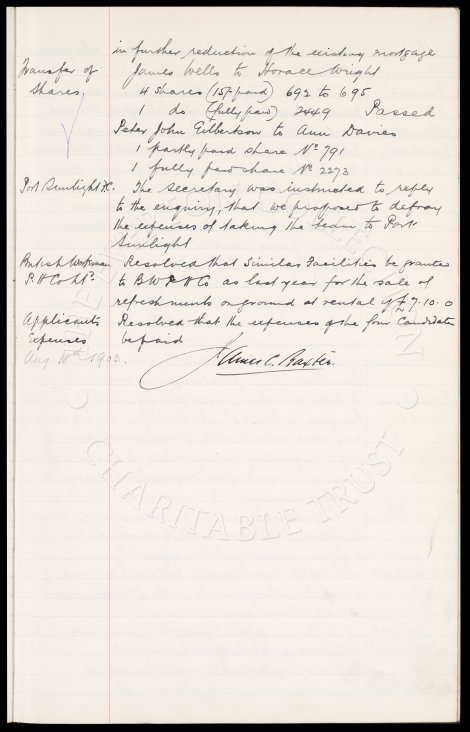 in further reduction of the existing mortgage
Transfer of James Wells to Horace Wright
Shares 4 shares (15/- paid) 692 to 695
1 do (fully paid) 2449 Passed
Peter John Gilbertson to Ann Davies
1 partly paid share No 791
1 fully paid share No 2273
Port Sunlight F.C. The Secretary was instructed to reply
to the enquiry, that we proposed to defray
the expenses of taking the team to Port
Sunlight
British Workman Resolved that similar facilities be granted
P. H Co Ltd. to B W P H Co as last year for the sale of
refreshments on ground at rental of £7.10.0
Applicants Resolved that the expenses of the four Candidates
Expenses be paid
Aug 1903. James C. Baxter.
CHARITABLE TRUST